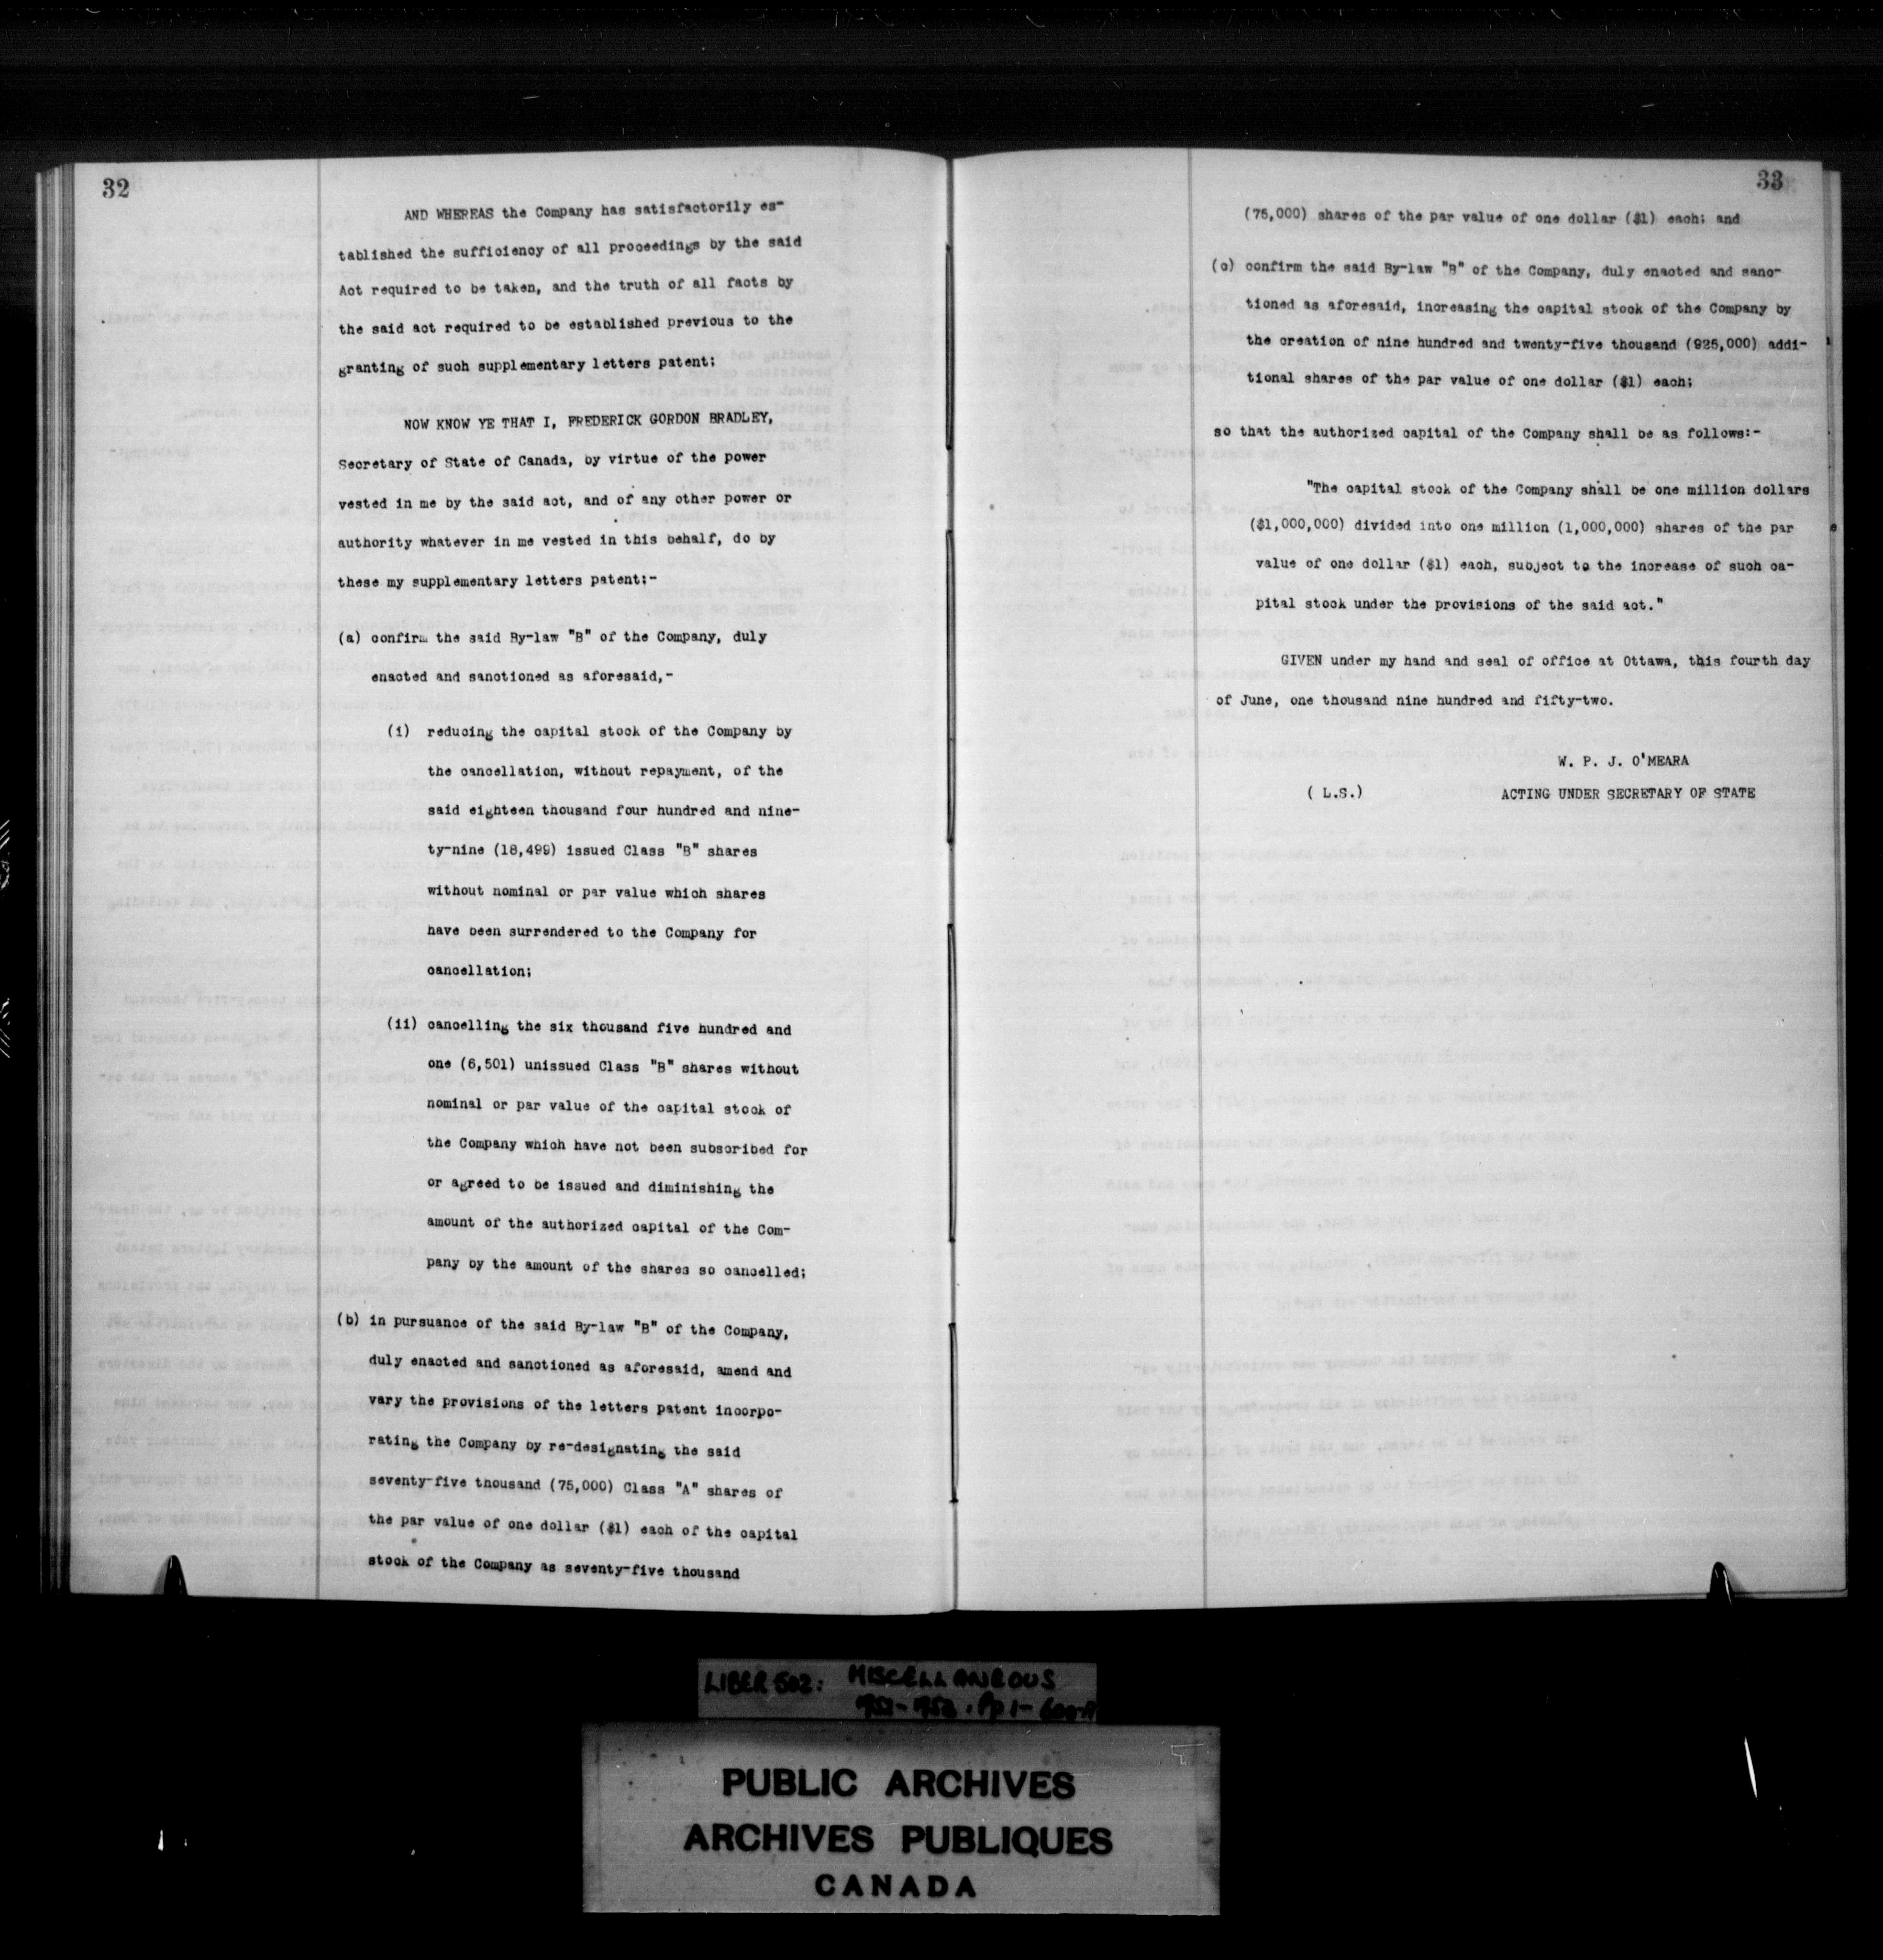 32
AND WHEREAS the Company has satisfactorily es-
tablished the sufficiency of all proceedings by the said
Act required to be taken, and the truth of all facts by
the said act required to be established previous to the
granting of such supplementary letters patent:
NOW KNOW YE THAT I, FREDERICK GORDON BRADLEY,
Secretary of State of Canada, by virtue of the power
vested in me by the said act, and of any other power or
authority whatever in me vested in this behalf, do by
these my supplementary letters patent:-
(a) confirm the said By-law "B" of the Company, duly
enacted and sanctioned as aforesaid,-
(i) reducing the capital stock of the Company by
the cancellation, without repayment, of the
said eighteen thousand four hundred and nine-
ty-nine (18,499) issued Class "B" shares
without nominal or par value which shares
have been surrendered to the Company for
cancellation;
(ii) cancelling the six thousand five hundred and
one (6,501) unissued Class "B" shares without
nominal or par value of the capital stock of
the Company which have not been subscribed for
or agreed to be issued and diminishing the
amount of the authorized capital of the Com-
pany by the amount of the shares so cancelled;
(b) in pursuance of the said By-law "B" of the Company,
duly enacted and sanctioned as aforesaid, amend and
vary the provisions of the letters patent incorpo-
rating the Company by re-designating the said
seventy-five thousand (75,000) Class "A" shares of
the par value of one dollar ($1) each of the capital
stock of the Company as seventy-five thousand
33
(75,000) shares of the par value of one dollar ($1) each; and
(c) confirm the said By-law "B" of the Company, duly enacted and sanc-
tioned as aforesaid, increasing the capital stock of the Company by
the creation of nine hundred and twenty-five thousand (925,000) addi-
tional shares of the par value of one dollar ($1) each;
so that the authorized capital of the Company shall be as follows:-
"The capital stock of the Company shall be one million dollars
($1,000,000) divided into one million (1,000,000) shares of the par
value of one dollar ($1) each, subject to the increase of such ca-
pital stock under the provisions of the said act."
GIVEN under my hand and seal of office at Ottawa, this fourth day
of June, one thousand nine hundred and fifty-two.
W. P. J. O'MEARA
(L.S.) ACTING UNDER SECRETARY OF STATE
LIBER 502: MISCELLANEOUS
PUBLIC ARCHIVES
ARCHIVES PUBLIQUES
CANADA